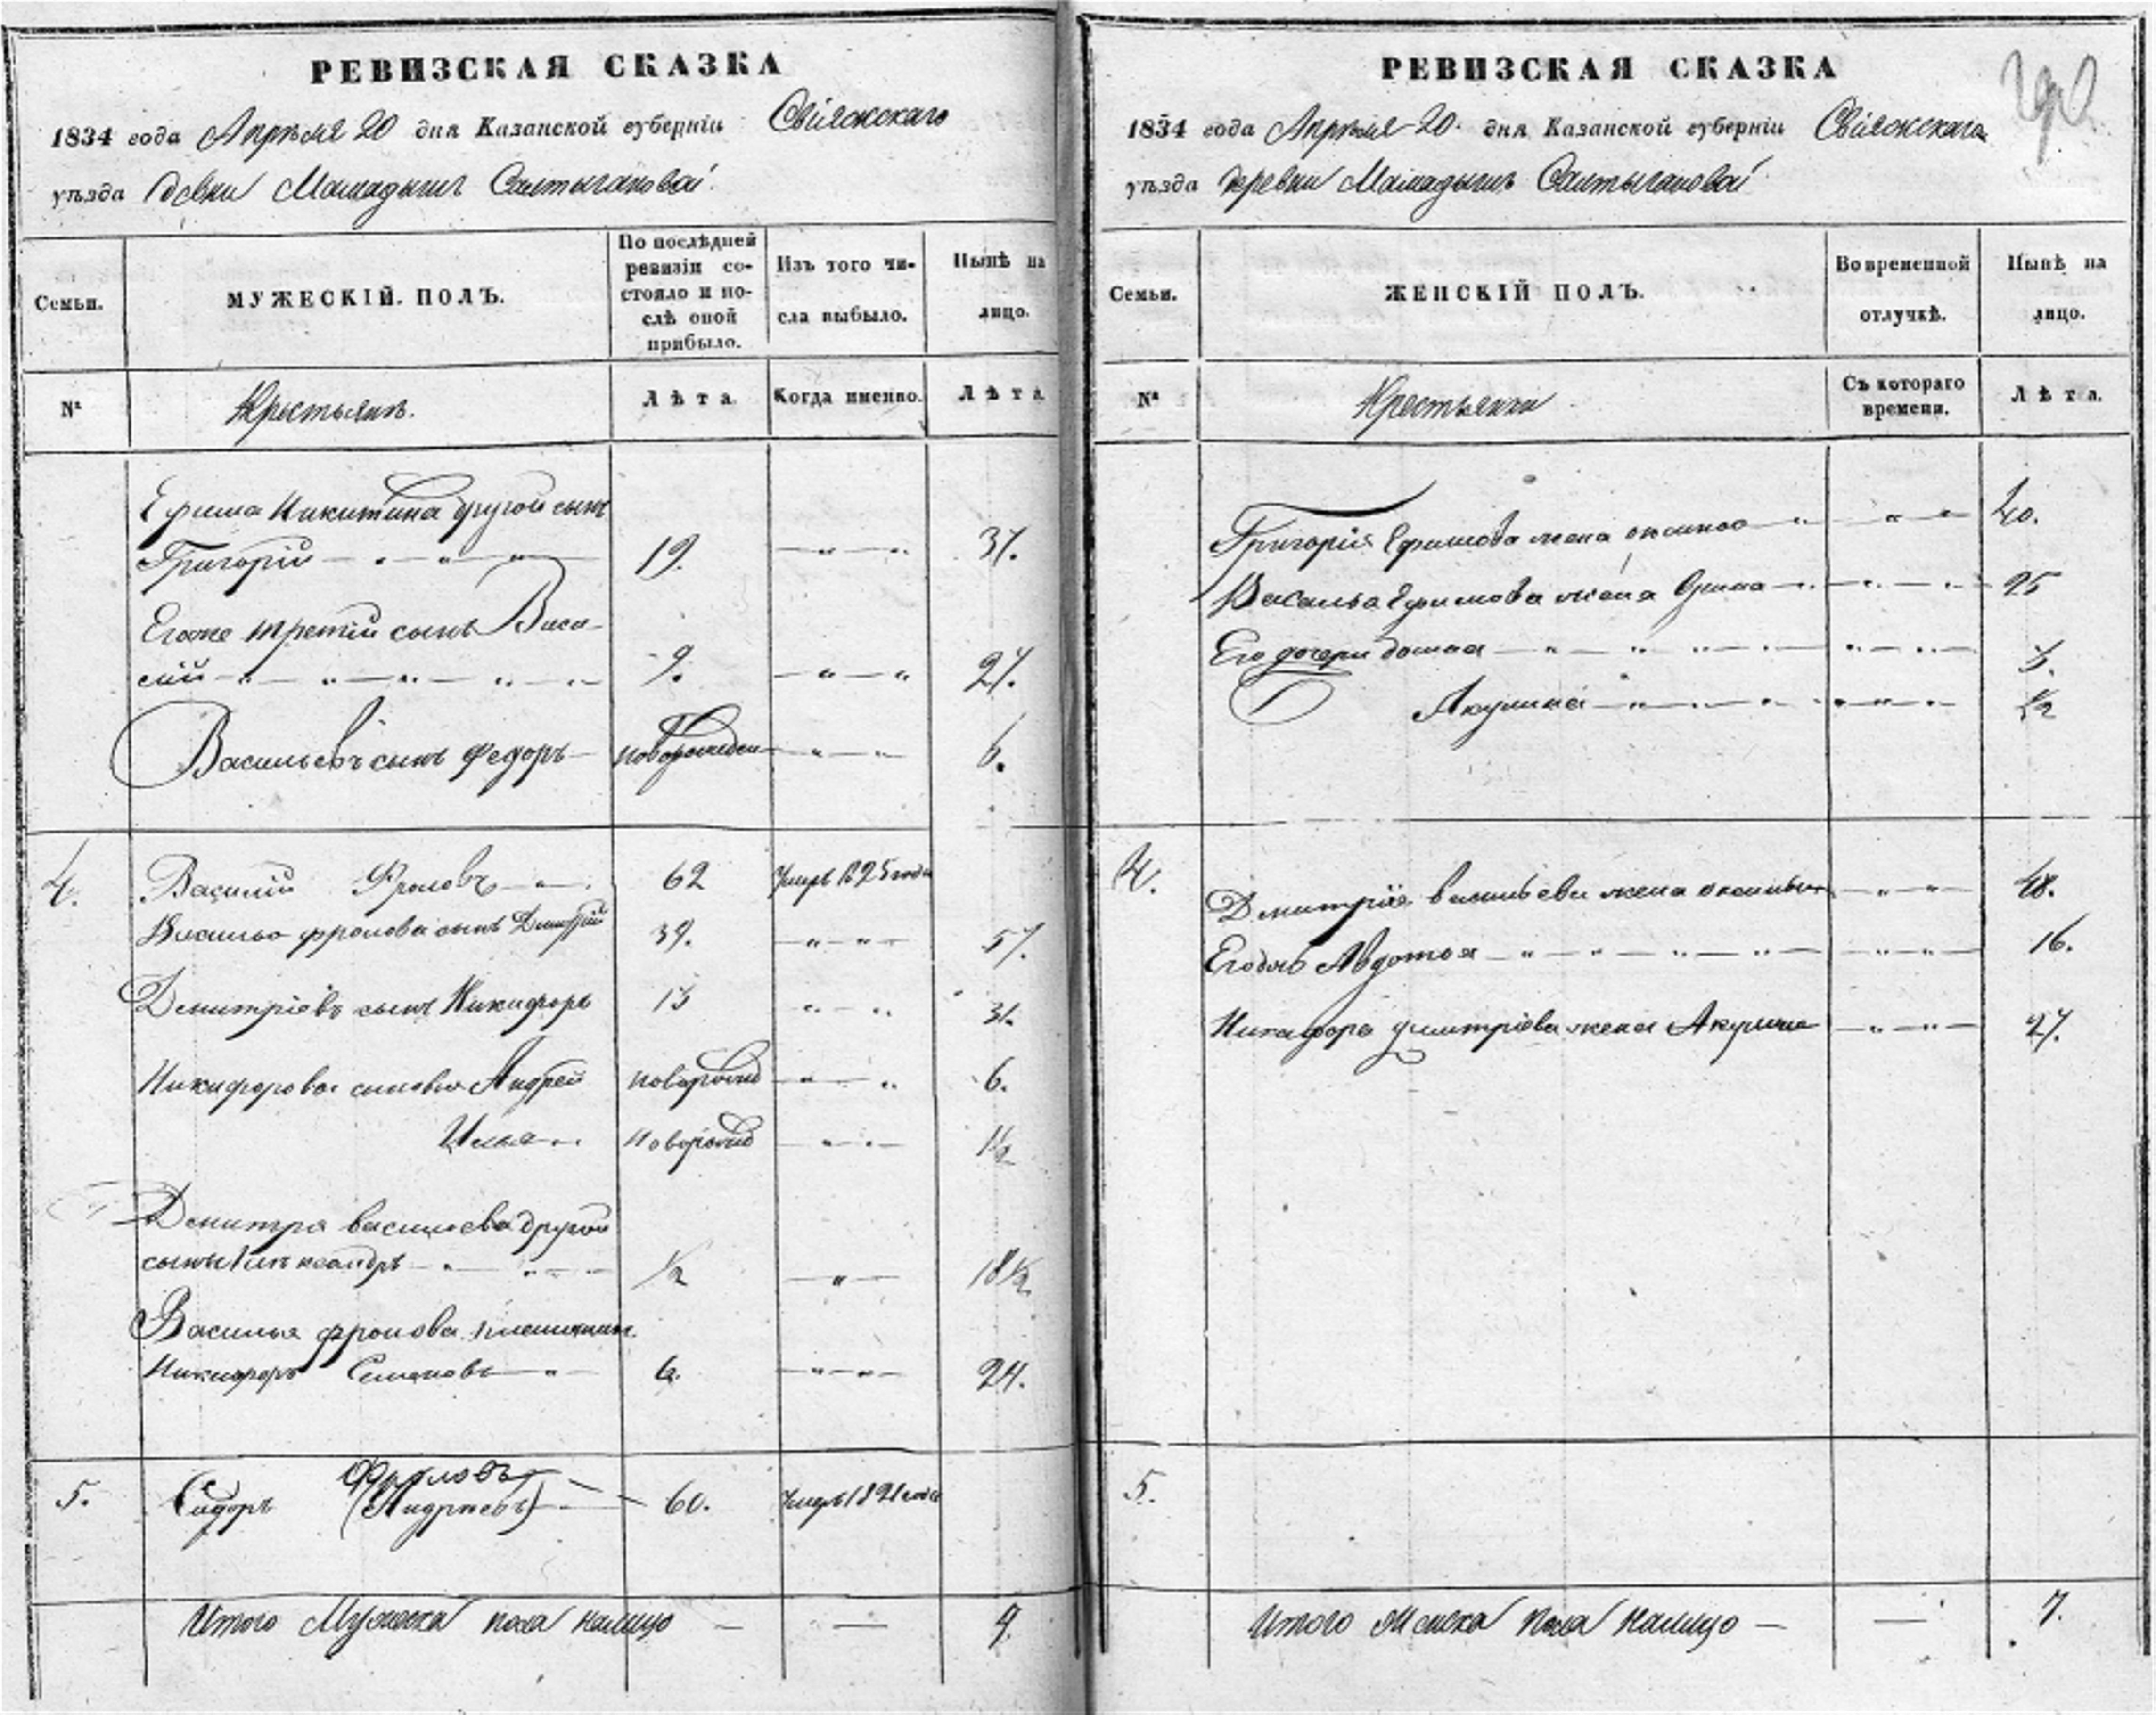 РЕВИЗСКАЯ СКАЗКА
1834 года Апреля 20 дня Казанской губерніи Свіяжскаго
уѣзда девни Мамадышъ Салтыгановай
Семьи.
МУЖЕСКІЙ ПОЛЪ.
По послѣдней ревизіи состояло и послѣ оной прибыло.
Изъ того числа выбыло.
Нынѣ на лицо.
№
Крестьянъ.
Лѣта.
Когда именно.
Лѣта.
Ефима Никитина другой сынъ
Григорій 19. 37.
Егоже третій сынъ Васи-
лій 9. 27.
Васильевъ сынъ Федоръ новорожден 6.
4. Василий Фроловъ 62 Умеръ 1825 года
Василья фролова сынъ Дмитрій 39. 57.
Демитріевъ сынъ Никифоръ 13 31.
Никифоровы сыновья Андрей новорожд 6.
Илья новорожд 1½
Демитрія васильева другой
сынъ 1/2 18 1/2
Василья фролова племянникъ
Никифоръ Семеновъ 6. 24.
5. Сидоръ Фроловъ (Андреевъ) 60. Умеръ 1821 года
Итого Мужеска пола налицо — — 9.
РЕВИЗСКАЯ СКАЗКА
1834 года Апреля 20. дня Казанской губерніи Свіяжскаго
уѣзда деревни Мамадышъ Салтыгановай
Семьи.
ЖЕНСКІЙ ПОЛЪ.
Во временной отлучкѣ.
Нынѣ на лицо.
№
Крестьянки
Съ котораго времени.
Лѣта.
Григорія Ефимова жена 40.
Василья Ефимова жена Орина 25
Его дочери Домна 3.
Акулина 1/2
4. Демитрія васильева жена 48.
Его дочь Авдотья 16.
Никифора димитріева жена Акулина 27.
5.
Итого Женска пола налицо — — 7.